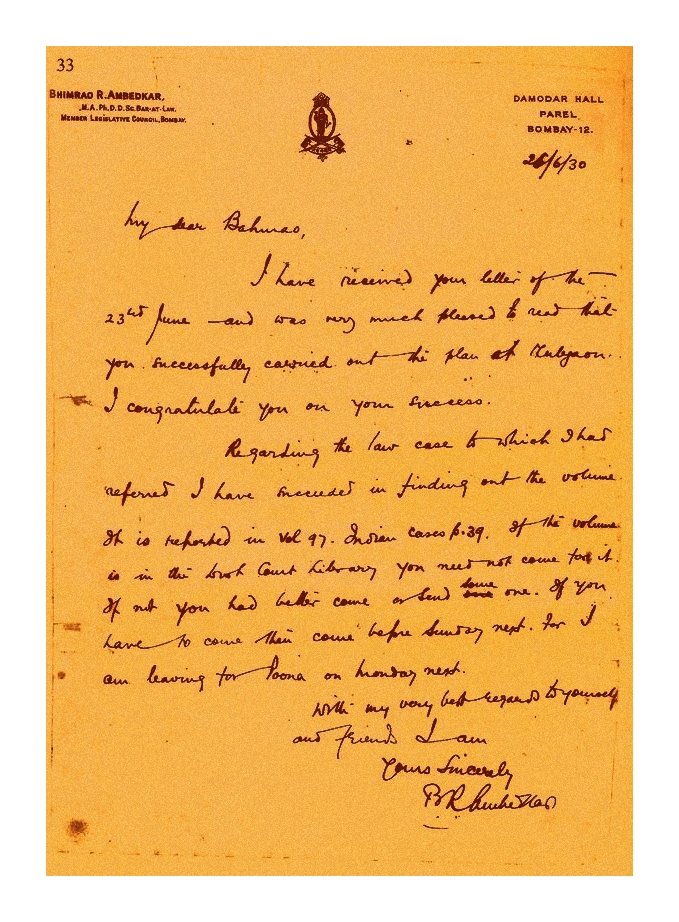 33
BHIMRAO R. AMBEDKAR,
M.A. Ph.D. D.Sc. BAR-AT-LAW.
MEMBER LEGISLATIVE COUNCIL, BOMBAY.
DAMODAR HALL
PAREL
BOMBAY-12.
/6/30
My dear
I have received your letter of the
23rd June and was very much pleased to read that
you successfully carried out the plan at
I congratulate you on your success.
Regarding the law case to which I had
referred I have succeeded in finding out the volume
It is reported in Vol 97. Indian Cases p. 39. If the volume
is in the Court Library you need not come for it.
If not you had better come or send some one. If you
have to come then come before Sunday next. For I
am leaving for Poona on Monday next.
With my very best regards to yourself
and friends I am
Yours Sincerely
B R Ambedkar